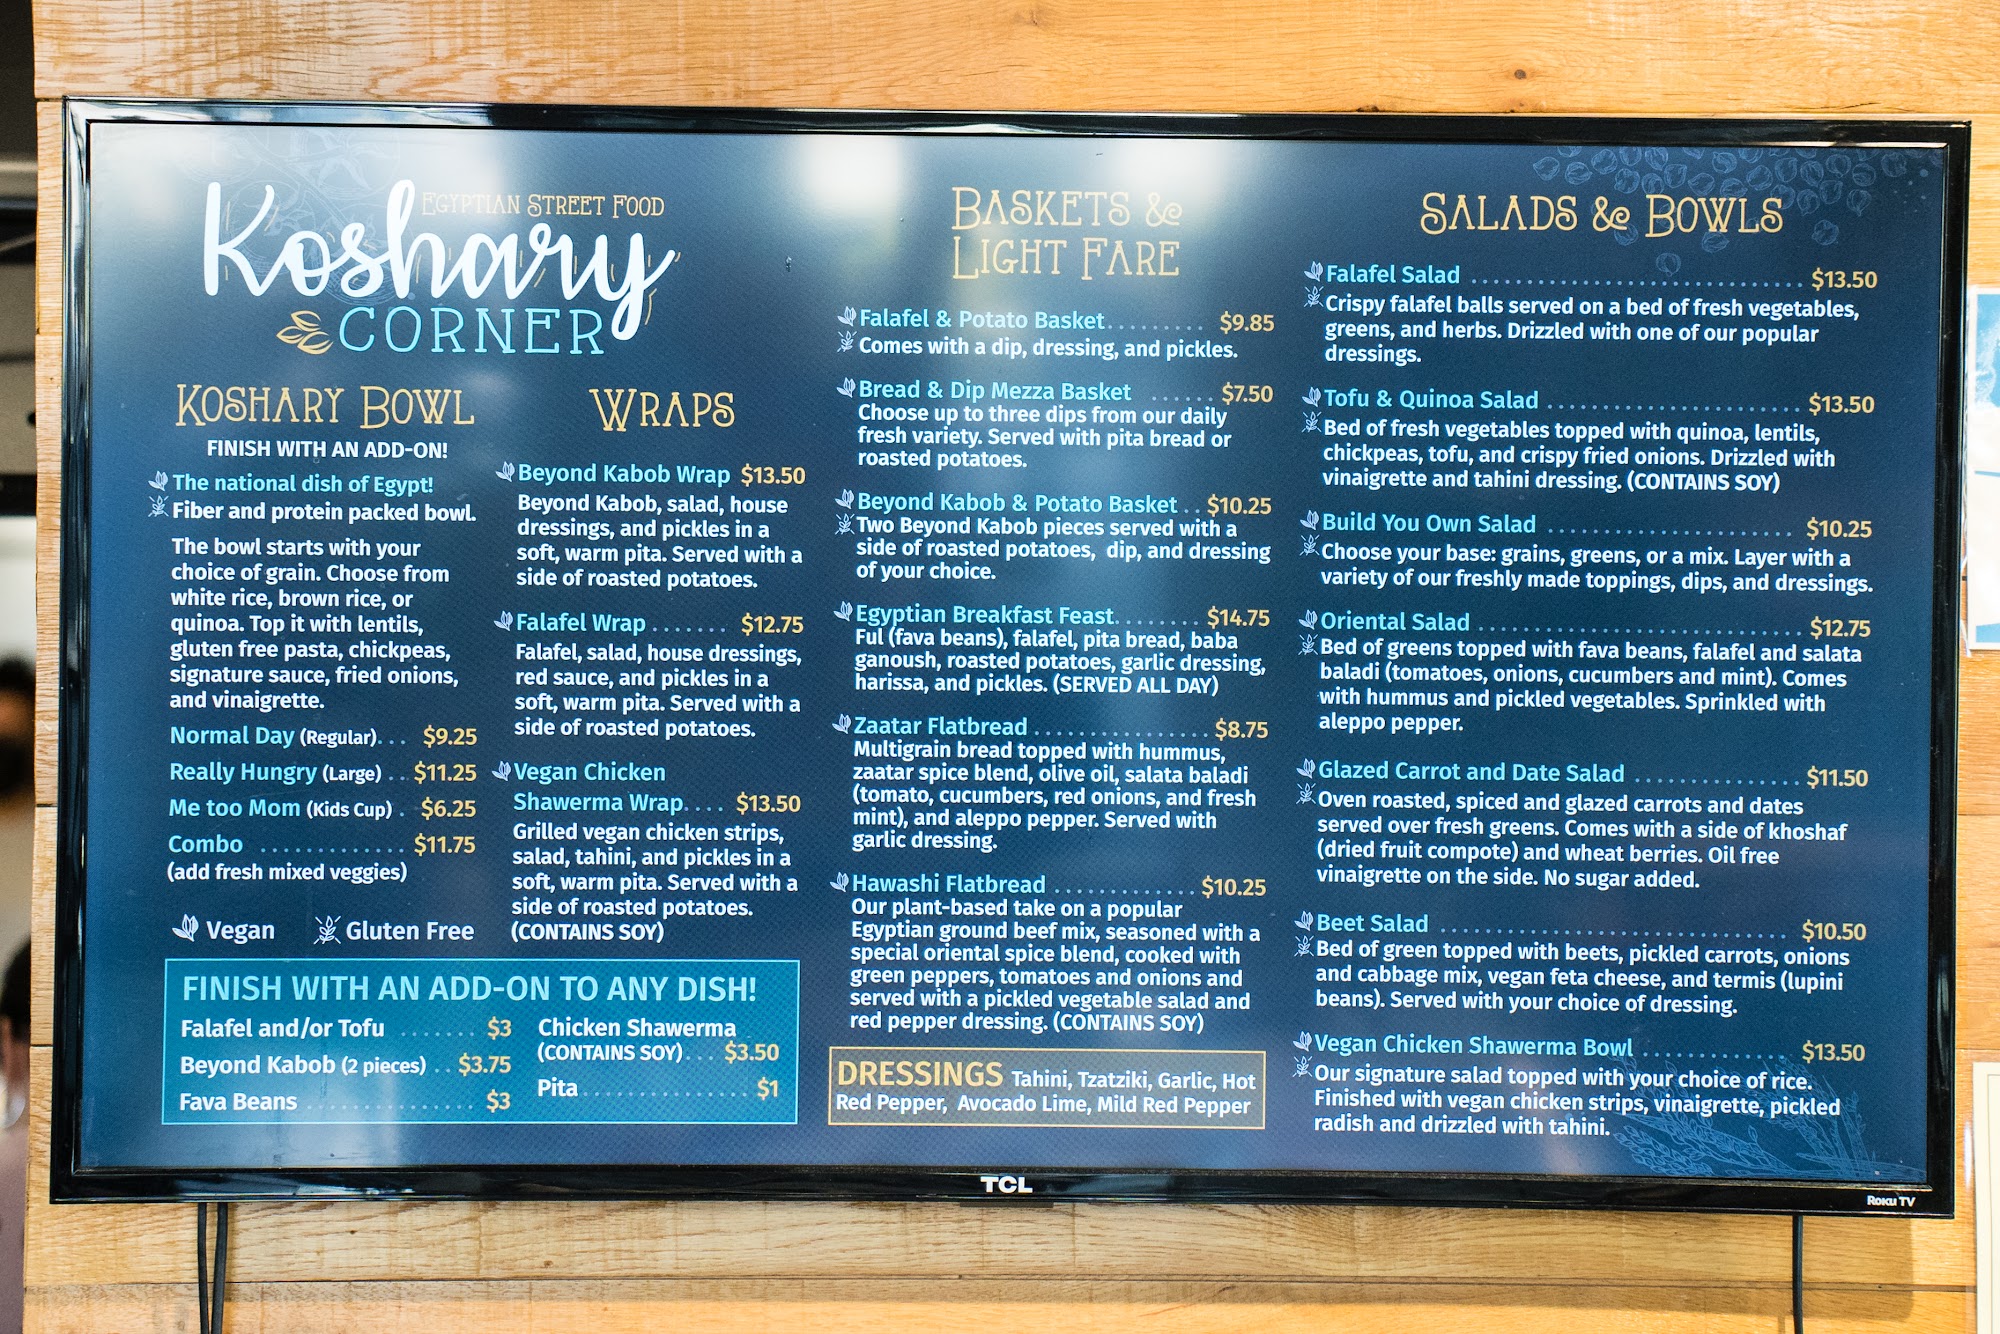 EGYPTIAN STREET FOOD
Koshary
CORNER
KOSHARY BOWL
FINISH WITH AN ADD-ON!
The national dish of Egypt!
Fiber and protein packed bowl.
The bowl starts with your
choice of grain. Choose from
white rice, brown rice, or
quinoa. Top it with lentils,
gluten free pasta, chickpeas,
signature sauce, fried onions,
and vinaigrette.
Normal Day (Regular)... $9.25
Really Hungry (Large) .. $11.25
Me too Mom (Kids Cup) . $6.25
Combo ............. $11.75
(add fresh mixed veggies)
Vegan Gluten Free
WRAPS
Beyond Kabob Wrap $13.50
Beyond Kabob, salad, house
dressings, and pickles in a
soft, warm pita. Served with a
side of roasted potatoes.
Falafel Wrap ....... $12.75
Falafel, salad, house dressings,
red sauce, and pickles in a
soft, warm pita. Served with a
side of roasted potatoes.
Vegan Chicken
Shawerma Wrap.... $13.50
Grilled vegan chicken strips,
salad, tahini, and pickles in a
soft, warm pita. Served with a
side of roasted potatoes.
(CONTAINS SOY)
FINISH WITH AN ADD-ON TO ANY DISH!
Falafel and/or Tofu ....... $3
Beyond Kabob (2 pieces) .. $3.75
Fava Beans ............... $3
Chicken Shawerma
(CONTAINS SOY)... $3.50
Pita .............. $1
BASKETS &
LIGHT FARE
Falafel & Potato Basket......... $9.85
Comes with a dip, dressing, and pickles.
Bread & Dip Mezza Basket ...... $7.50
Choose up to three dips from our daily
fresh variety. Served with pita bread or
roasted potatoes.
Beyond Kabob & Potato Basket .. $10.25
Two Beyond Kabob pieces served with a
side of roasted potatoes, dip, and dressing
of your choice.
Egyptian Breakfast Feast......... $14.75
Ful (fava beans), falafel, pita bread, baba
ganoush, roasted potatoes, garlic dressing,
harissa, and pickles. (SERVED ALL DAY)
Zaatar Flatbread ................ $8.75
Multigrain bread topped with hummus,
zaatar spice blend, olive oil, salata baladi
(tomato, cucumbers, red onions, and fresh
mint), and aleppo pepper. Served with
garlic dressing.
Hawashi Flatbread ............. $10.25
Our plant-based take on a popular
Egyptian ground beef mix, seasoned with a
special oriental spice blend, cooked with
green peppers, tomatoes and onions and
served with a pickled vegetable salad and
red pepper dressing. (CONTAINS SOY)
DRESSINGS Tahini, Tzatziki, Garlic, Hot
Red Pepper, Avocado Lime, Mild Red Pepper
SALADS & BOWLS
Falafel Salad ................................ $13.50
Crispy falafel balls served on a bed of fresh vegetables,
greens, and herbs. Drizzled with one of our popular
dressings.
Tofu & Quinoa Salad ........................ $13.50
Bed of fresh vegetables topped with quinoa, lentils,
chickpeas, tofu, and crispy fried onions. Drizzled with
vinaigrette and tahini dressing. (CONTAINS SOY)
Build You Own Salad ....................... $10.25
Choose your base: grains, greens, or a mix. Layer with a
variety of our freshly made toppings, dips, and dressings.
Oriental Salad ............................... $12.75
Bed of greens topped with fava beans, falafel and salata
baladi (tomatoes, onions, cucumbers and mint). Comes
with hummus and pickled vegetables. Sprinkled with
aleppo pepper.
Glazed Carrot and Date Salad ................ $11.50
Oven roasted, spiced and glazed carrots and dates
served over fresh greens. Comes with a side of khoshaf
(dried fruit compote) and wheat berries. Oil free
vinaigrette on the side. No sugar added.
Beet Salad .................................. $10.50
Bed of green topped with beets, pickled carrots, onions
and cabbage mix, vegan feta cheese, and termis (lupini
beans). Served with your choice of dressing.
Vegan Chicken Shawerma Bowl .............. $13.50
Our signature salad topped with your choice of rice.
Finished with vegan chicken strips, vinaigrette, pickled
radish and drizzled with tahini.
TCL
ROKU TV